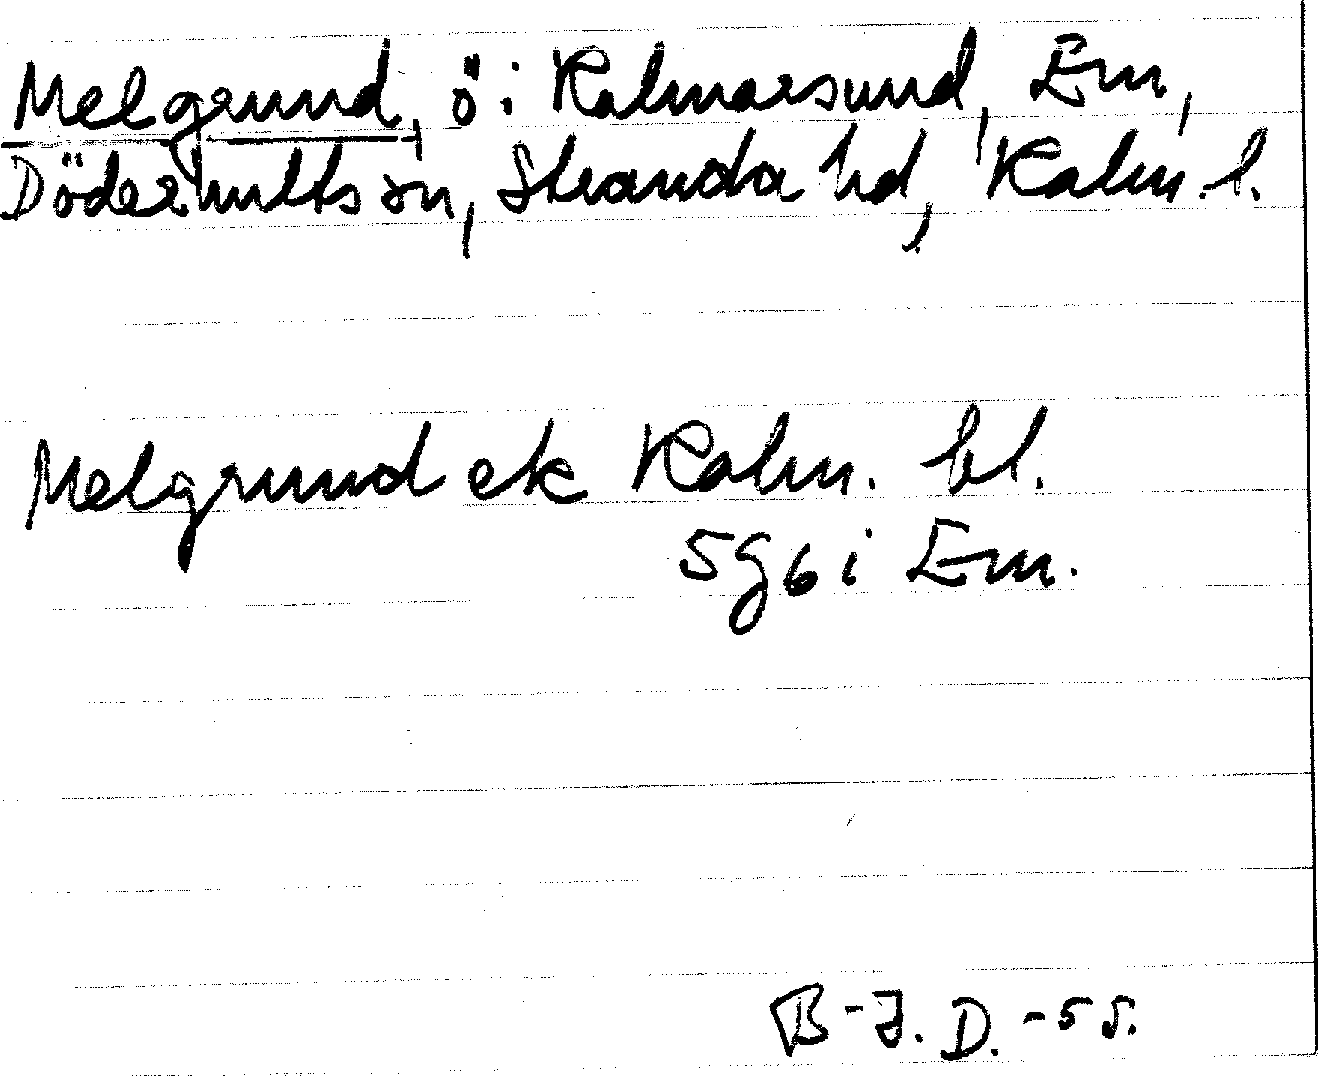 Melgrund, ö i Kalmarsund, Em,
Döderhults sn, Stranda hd, Kalm. l.
Melgrund ek Kalm. bl.
5g6i Em.
B-J. D. -55.